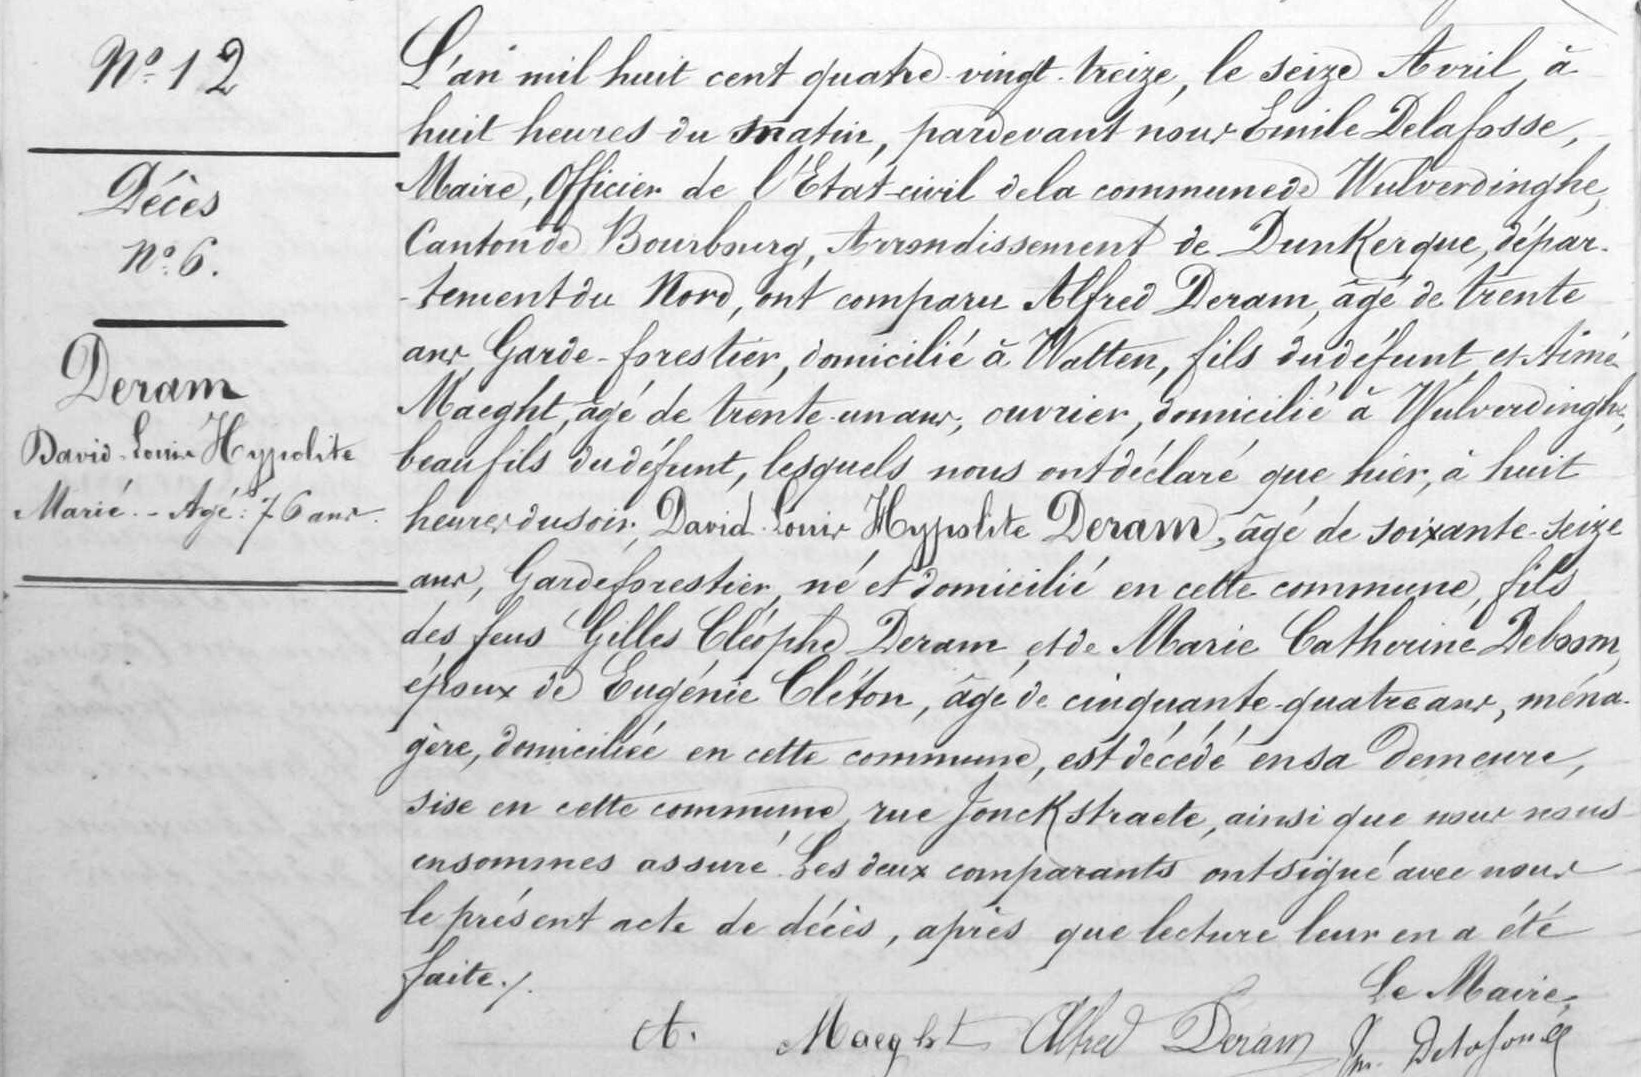 Nº 12
Décès
Nº 6.
Deram
David Louis Hypolite
Marié. - Agé: 76 ans.
L'an mil huit cent quatre vingt treize, le seize Avril, à
huit heures du matin, pardevant nous Emile Delafosse,
Maire, Officier de l'Etat-civil de la commune de Wulverdinghe,
Canton de Bourbourg, Arrondissement de Dunkerque, dépar-
-tement du Nord, ont comparu Alfred Deram, âgé de trente
ans, Garde-forestier, domicilié à Watten, fils du défunt et Aimé
Maeght, âgé de trente-un ans, ouvrier, domicilié à Wulverdinghe,
beau fils du défunt, lesquels nous ont déclaré que hier, à huit
heures du soir, David Louis Hypolite Deram, âgé de soixante-seize
ans, Garde forestier, né et domicilié en cette commune, fils
des feus Gilles Cléophe Deram et de Marie Catherine Deboom,
époux de Eugénie Cléton, âgé de cinquante-quatre ans, ména-
gère, domiciliée en cette commune, est décédé en sa demeure,
sise en cette commune, rue Jonckstraete, ainsi que nous nous
en sommes assuré. Les deux comparants ont signé avec nous
le présent acte de décès, après que lecture leur en a été
faite./.
Le Maire,
A. Maeght Alfred Deram Em. Delafosse